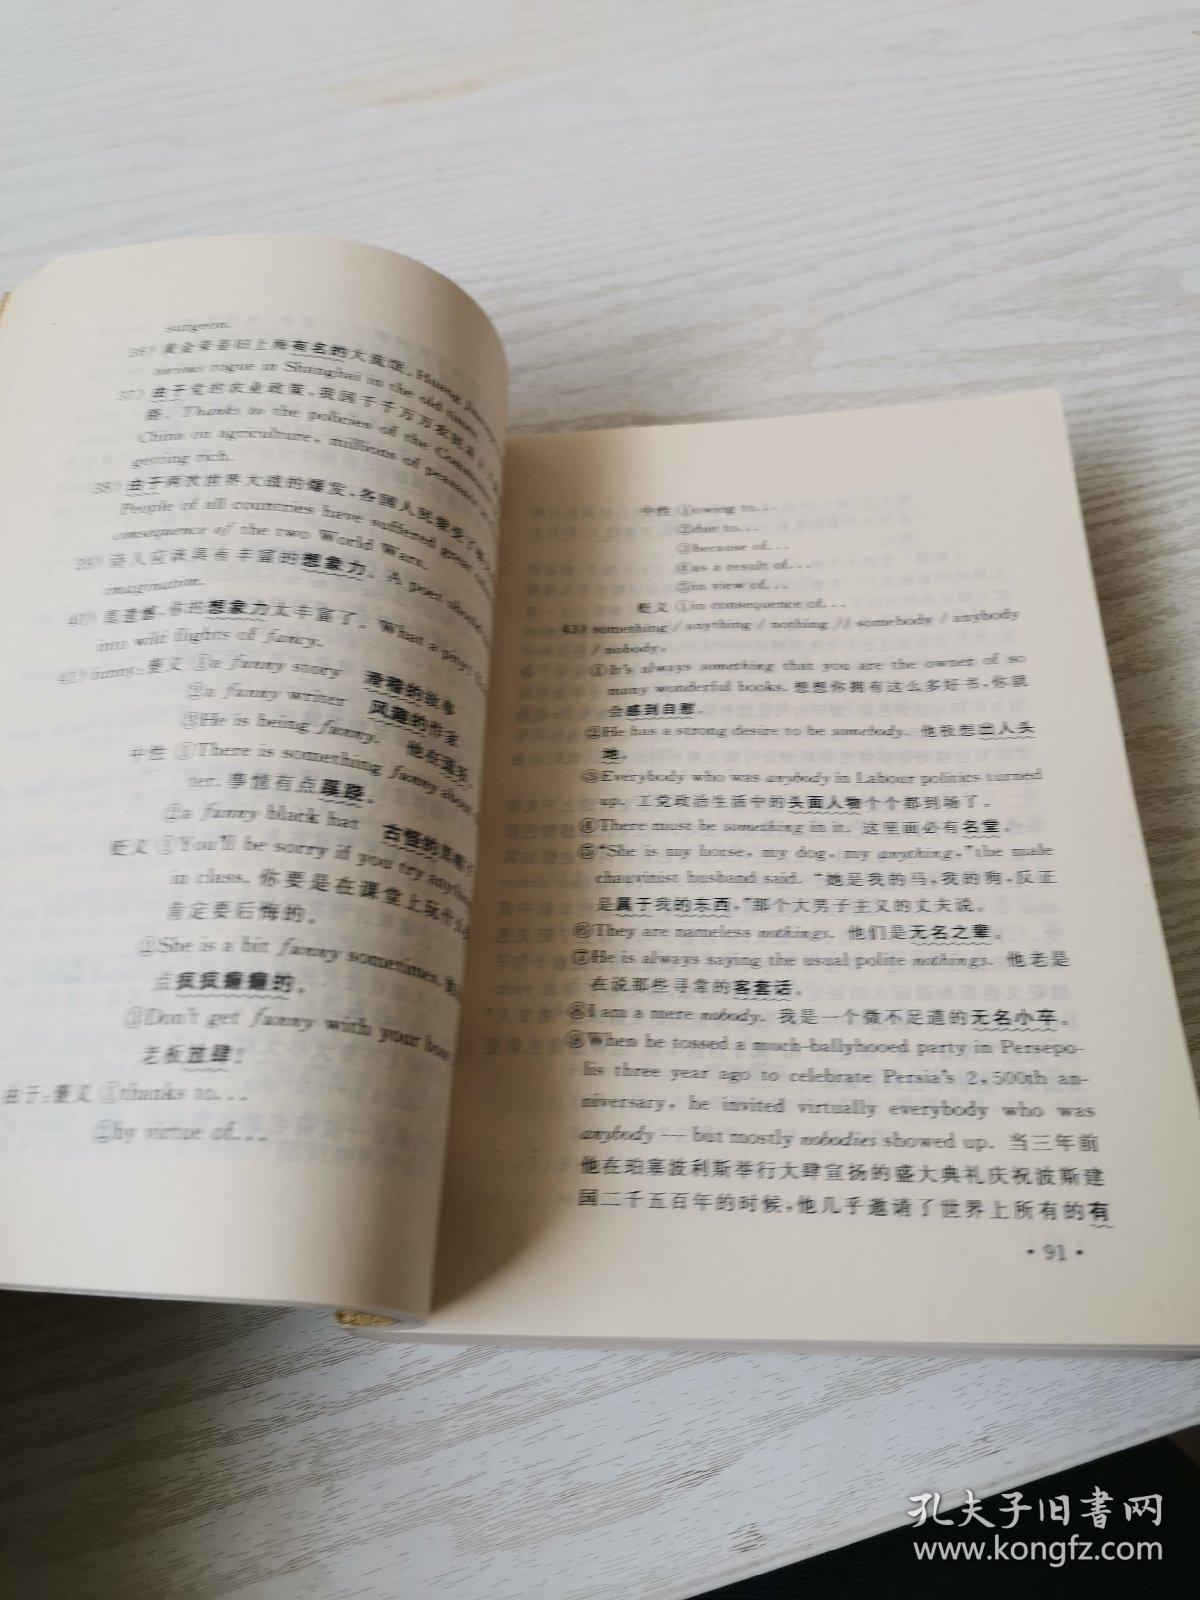 surgeon.
36) 黄金荣是旧上海有名的大流氓。Huang
torious rogue in Shanghai in the old times.
37) 由于党的农业政策，我国千千万万农民
路。Thanks to the policies of the
China on agriculture, millions of peasants
getting rich.
38) 由于两次世界大战的爆发，各国人民蒙受了
People of all countries have suffered great
consequence of the two World Wars.
39) 诗人应该具有丰富的想象力。A poet should
imagination.
真遗憾，你的想象力太丰富了。What a pity!
into wild flights of fancy.
funny：褒义 ①a funny story 滑稽的故事
②a funny writer 风趣的作家
③He is being funny. 他在逗笑
中性 ①There is something funny about
ter. 事情有点蹊跷。
②a funny black hat 古怪的黑帽
贬义 ①You'll be sorry if you try anything
in class. 你要是在课堂上玩什么
肯定要后悔的。
②She is a bit funny sometimes.
点疯疯癫癫的。
③Don't get funny with your boss
老板放肆！
由于：褒义 ①thanks to...
②by virtue of...
中性 ①owing to...
②due to...
③because of...
④as a result of...
⑤in view of...
贬义 ①in consequence of...
43) something / anything / nothing // somebody / anybody
/ nobody.
①It's always something that you are the owner of so
many wonderful books. 想想你拥有这么多好书，你就
会感到自慰.
②He has a strong desire to be somebody. 他极想出人头
地.
③Everybody who was anybody in Labour politics turned
up. 工党政治生活中的头面人物个个都到场了.
④There must be something in it. 这里面必有名堂。
⑤“She is my horse, my dog, my anything,” the male
chauvinist husband said. “她是我的马，我的狗，反正
是属于我的东西，”那个大男子主义的丈夫说。
⑥They are nameless nothings. 他们是无名之辈。
⑦He is always saying the usual polite nothings. 他老是
在说那些寻常的客套话。
⑧I am a mere nobody. 我是一个微不足道的无名小卒。
⑨When he tossed a much-ballyhooed party in Persepo-
lis three year ago to celebrate Persia's 2,500th an-
niversary, he invited virtually everybody who was
anybody — but mostly nobodies showed up. 当三年前
他在珀塞波利斯举行大肆宣扬的盛大典礼庆祝波斯建
国二千五百年的时候，他几乎邀请了世界上所有的有
· 91 ·
孔夫子旧书网
www.kongfz.com